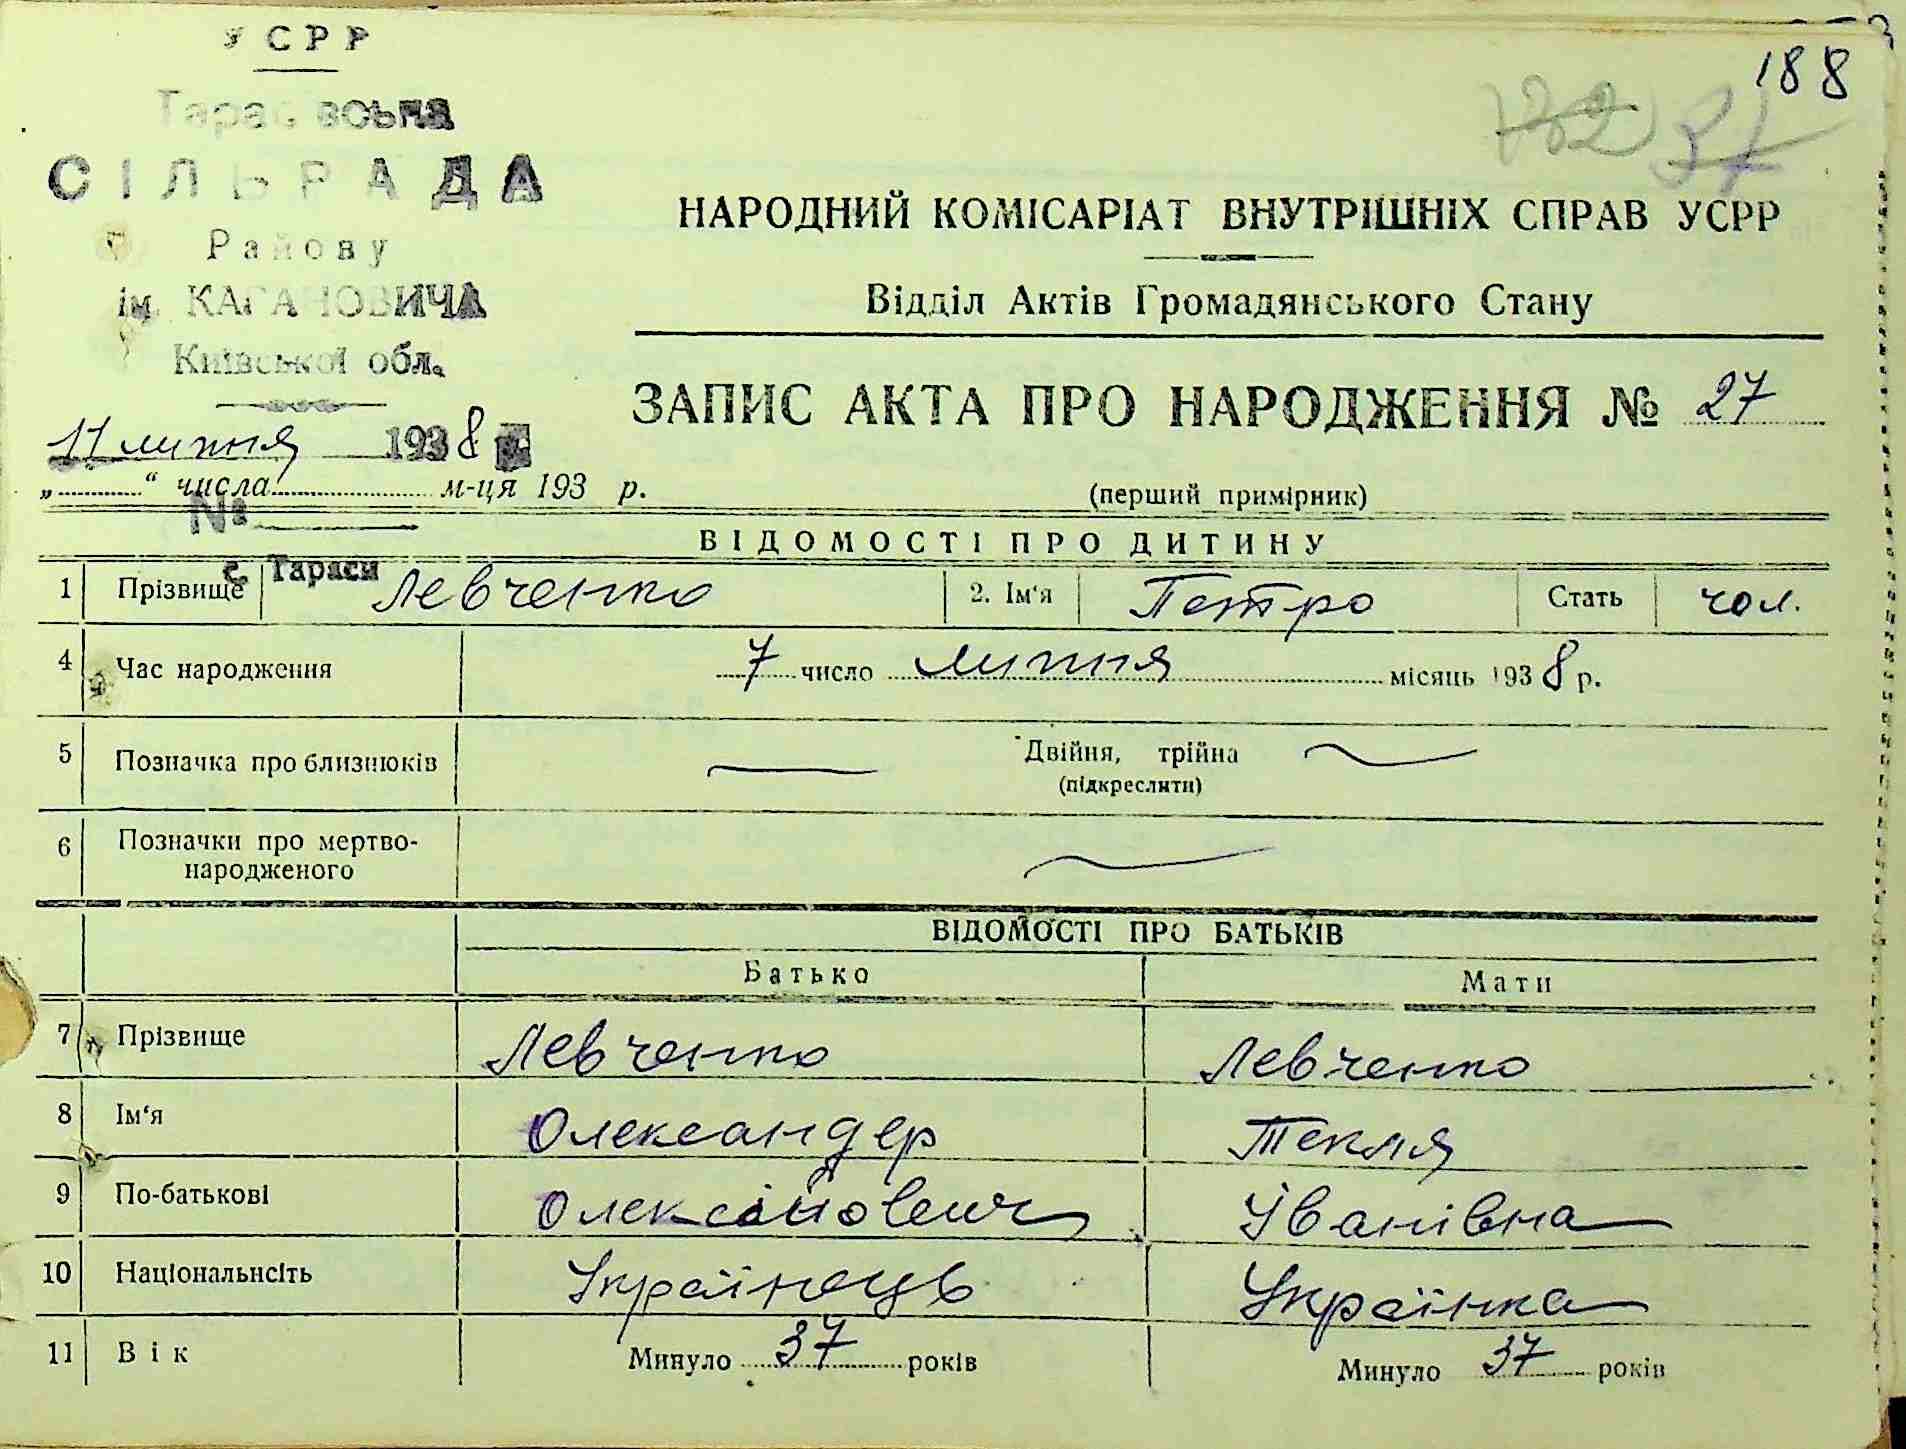 УСРР
188
Тарасівська
182 37
СІЛЬРАДА
Району
ім. КАГАНОВИЧА
Київської обл.
11 липня 1938
„ “ числа м-ця 193 р.
№
с. Тараси
НАРОДНИЙ КОМІСАРІАТ ВНУТРІШНІХ СПРАВ УСРР
Відділ Актів Громадянського Стану
ЗАПИС АКТА ПРО НАРОДЖЕННЯ № 27
(перший примірник)
ВІДОМОСТІ ПРО ДИТИНУ
1 Прізвище Левченко 2. Ім‘я Петро Стать чол.
4 Час народження 7 число липня місяць 1938 р.
5 Позначка про близнюків Двійня, трійна
(підкреслити)
6 Позначки про мертво-
народженого
ВІДОМОСТІ ПРО БАТЬКІВ
Батько Мати
7 Прізвище Левченко Левченко
8 Ім‘я Олександер Текля
9 По-батькові Олексійович Іванівна
10 Національнсіть Українець Українка
11 Вік Минуло 37 років Минуло 37 років